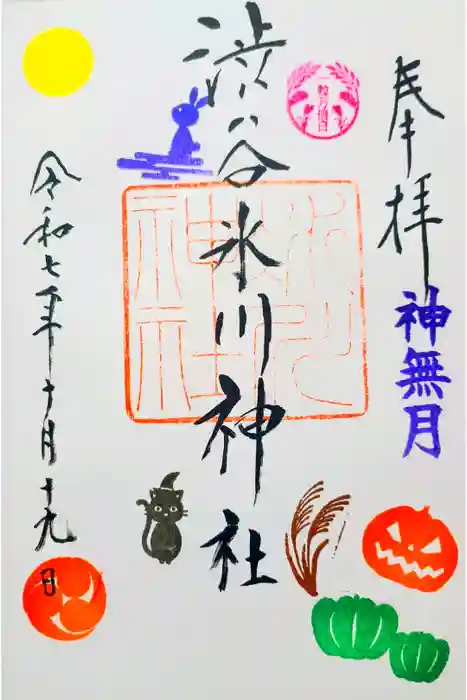 奉拝
神無月
渋谷氷川神社
氷川
神社
令和七年十月十九日